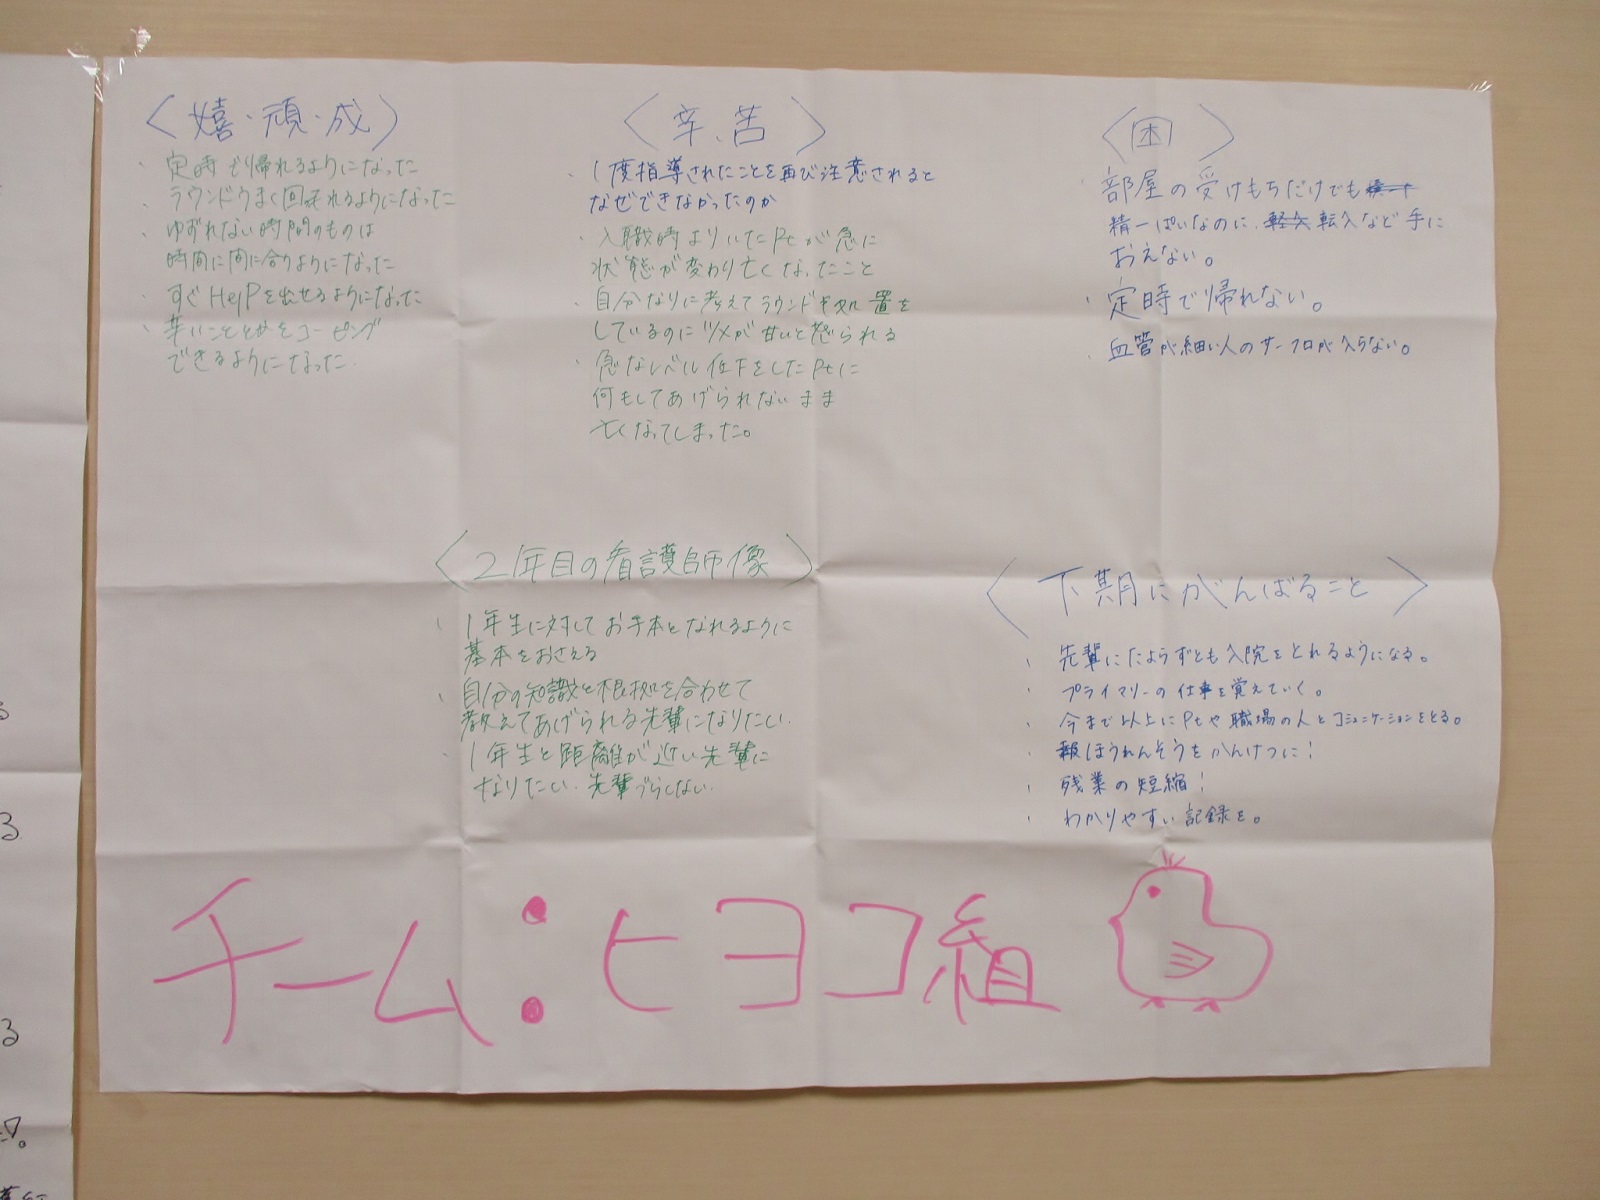 〈嬉・頑・成〉
・定時で帰れるようになった
・ラウンドうまく回れるようになった
・ゆずれない時間のものは
時間に間に合うようになった
・すぐHelpを出せるようになった
・辛いこととかをコーピング
できるようになった
〈辛、苦〉
・1度指導されたことを再び注意されると
なぜできなかったのか
・入職時よりいたPtが急に
状態が変わり亡くなったこと
・自分なりに考えてラウンドや処置を
しているのにツメが甘いと怒られる
・急なレベル低下をしたPtに
何もしてあげられないまま
亡くなってしまった。
〈困〉
・部屋の受けもちだけでも
精一ぱいなのに、転入など手に
おえない。
・定時で帰れない。
・血管が細い人のサーフロが入らない。
〈2年目の看護師像〉
・1年生に対してお手本となれるように
基本をおさえる
・自分の知識と根拠を合わせて
教えてあげられる先輩になりたい.
・1年生と距離が近い先輩に
なりたい.先輩づらしない.
〈下期にがんばること〉
・先輩にたよらずとも入院をとれるようになる。
・プライマリーの仕事を覚えていく。
・今まで以上にPtや職場の人とコミュニケーションをとる。
・ほうれんそうをかんけつに!
・残業の短縮!
・わかりやすい記録を。
チーム:ヒヨコ組
る
る